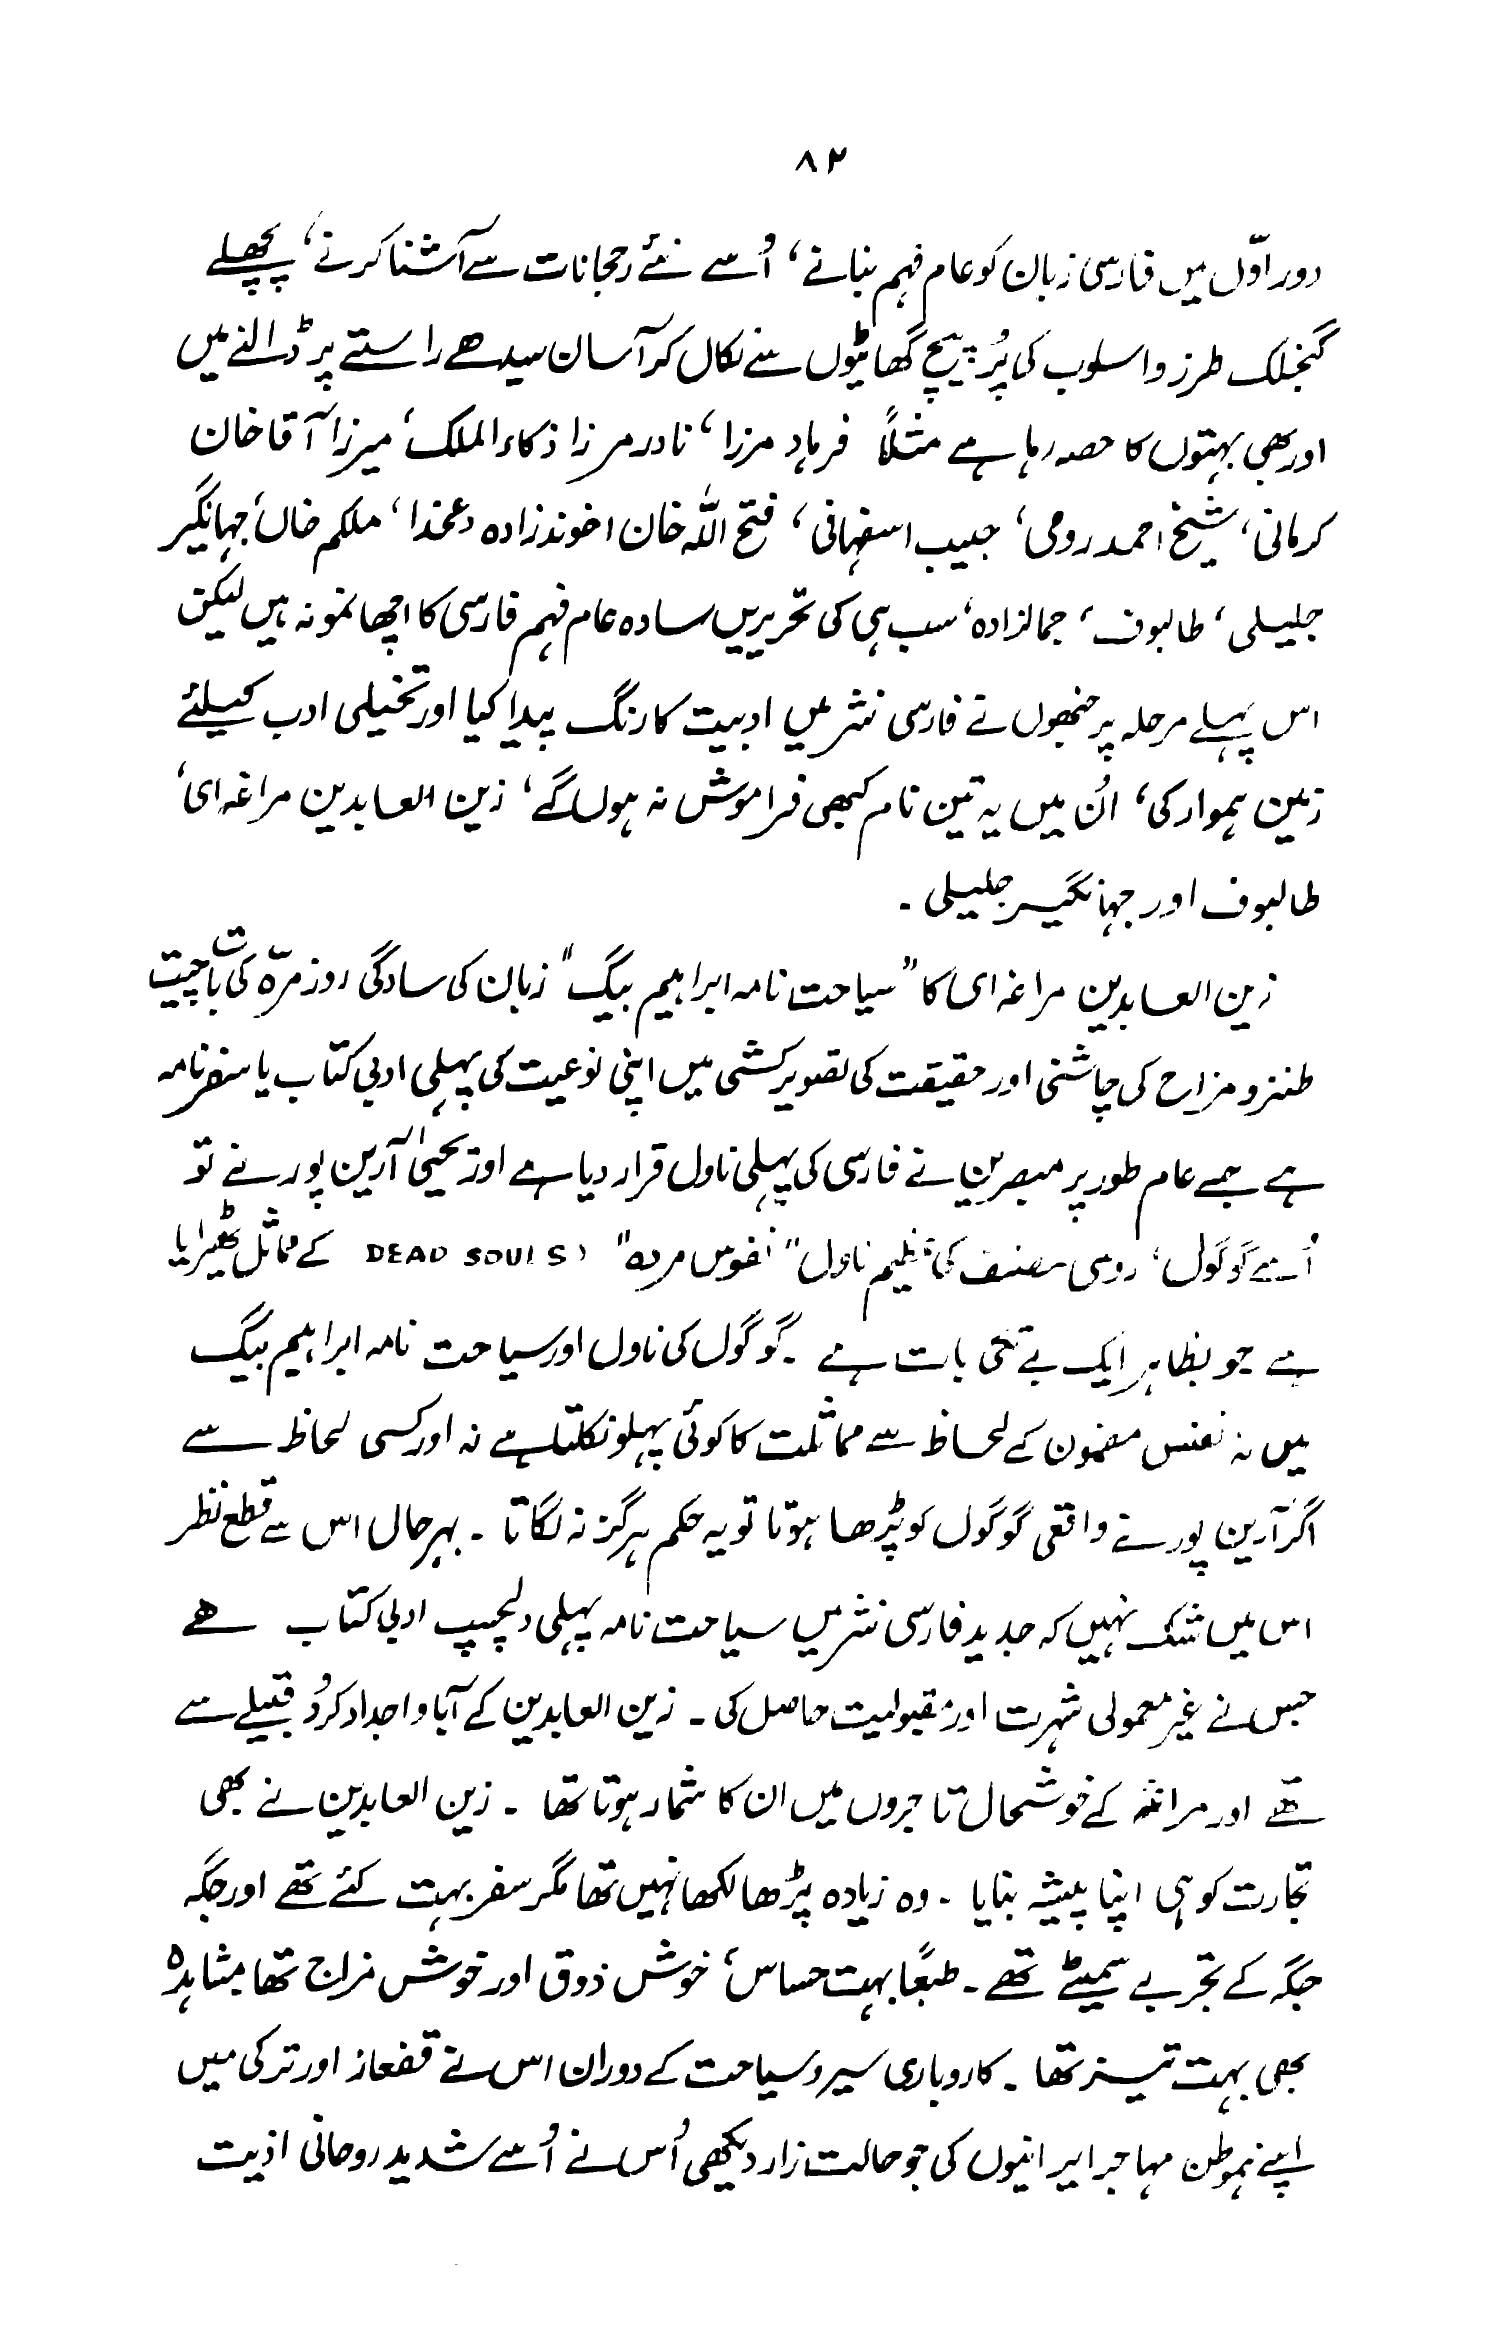 ۸۲
دور اوّل میں فارسی زبان کو عام فہم بنانے، اُسے نئے رحجانات سے آشنا کرنے، پچھلے
گنجلک طرز و اسلوب کی پُر پیچ گھاٹیوں سے نکال کر آسان سیدھے راستے پر ڈالنے میں
اور بھی بہتوں کا حصہ رہا ہے مثلاً فرہاد مرزا، نادر مرزا ذکاء الملک، میرزا آقا خان
کرمانی، شیخ احمد رومی، حبیب اسفہانی، فتح اللہ خان اخوند زادہ دعخدا، ملکم خاں، جہانگیر
جلیلی، طالبوف، جمالزادہ، سب ہی کی تحریریں سادہ عام فہم فارسی کا اچھا نمونہ ہیں لیکن
اس پہلے مرحلہ پر جنھوں نے فارسی نثر میں ادبیت کا رنگ پیدا کیا اور تخیلی ادب کیلئے
زمین ہموار کی، اُن میں یہ تین نام کبھی فراموش نہ ہوں گے، زین العابدین مراغہ ای،
طالبوف اور جہانگیر جلیلی ۔
زین العابدین مراغہ ای کا "سیاحت نامہ ابراہیم بیگ" زبان کی سادگی روز مرّہ کی بات چیت
طنز و مزاح کی چاشنی اور حقیقت کی تصویر کشی میں اپنی نوعیت کی پہلی ادبی کتاب یا سفرنامہ
ہے جسے عام طور پر مبصرین نے فارسی کی پہلی ناول قرار دیا ہے اور یحییٰ آرین پور نے تو
اُسے گوگول، روسی مصنف کی عظیم ناول "نفوس مردہ" (DEAD SOULS کے مماثل ٹھیرایا
ہے جو بظاہر ایک بے تکی بات ہے ۔ گوگول کی ناول اور سیاحت نامہ ابراہیم بیگ
میں نہ نفس مضمون کے لحاظ سے مماثلت کا کوئی پہلو نکلتا ہے نہ اور کسی لحاظ سے
اگر آرین پور نے واقعی گوگول کو پڑھا ہوتا تو یہ حکم ہرگز نہ لگاتا ۔ بہرحال اس سے قطع نظر
اس میں شک نہیں کہ جدید فارسی نثر میں سیاحت نامہ پہلی دلچسپ ادبی کتاب ھے
جس نے غیر معمولی شہرت اور مقبولیت حاصل کی ۔ زین العابدین کے آبا و اجداد کرُد قبیلے سے
تھے اور مراغہ کے خوشحال تاجروں میں ان کا شمار ہوتا تھا ۔ زین العابدین نے بھی
تجارت کو ہی اپنا پیشہ بنایا ۔ وہ زیادہ پڑھا لکھا نہیں تھا مگر سفر بہت کئے تھے اور جگہ
جگہ کے تجربے سمیٹے تھے ۔ طبعاً بہت حساس، خوش ذوق اور خوش مزاج تھا مشاہدہ
بھی بہت تیز تھا ۔ کاروباری سیر و سیاحت کے دوران اس نے قفعاز اور ترکی میں
اپنے ہموطن مہاجر ایرانیوں کی جو حالت زار دیکھی اُس نے اُسے شدید روحانی اذیت